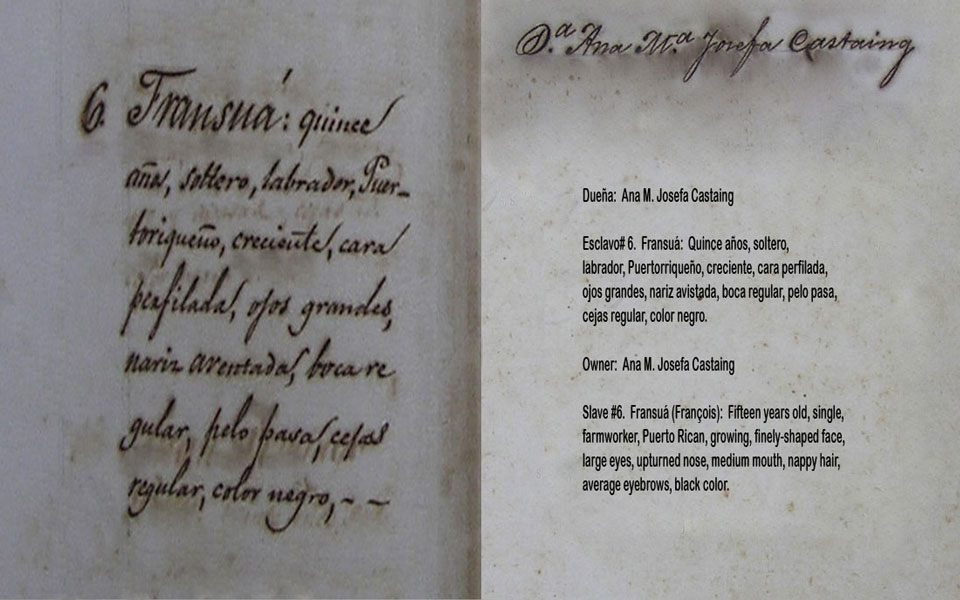 6. Fransuá: quince
años, soltero, labrador, Puer-
toriqueño, creciente, cara
perfilada, ojos grandes,
nariz aventada, boca re
gular, pelo pasa, cejas
regular, color negro, - -
D.ª Ana M.ª Josefa Castaing
Dueña: Ana M. Josefa Castaing
Esclavo# 6. Fransuá: Quince años, soltero,
labrador, Puertorriqueño, creciente, cara perfilada,
ojos grandes, nariz avistada, boca regular, pelo pasa,
cejas regular, color negro.
Owner: Ana M. Josefa Castaing
Slave #6. Fransuá (François): Fifteen years old, single,
farmworker, Puerto Rican, growing, finely-shaped face,
large eyes, upturned nose, medium mouth, nappy hair,
average eyebrows, black color.